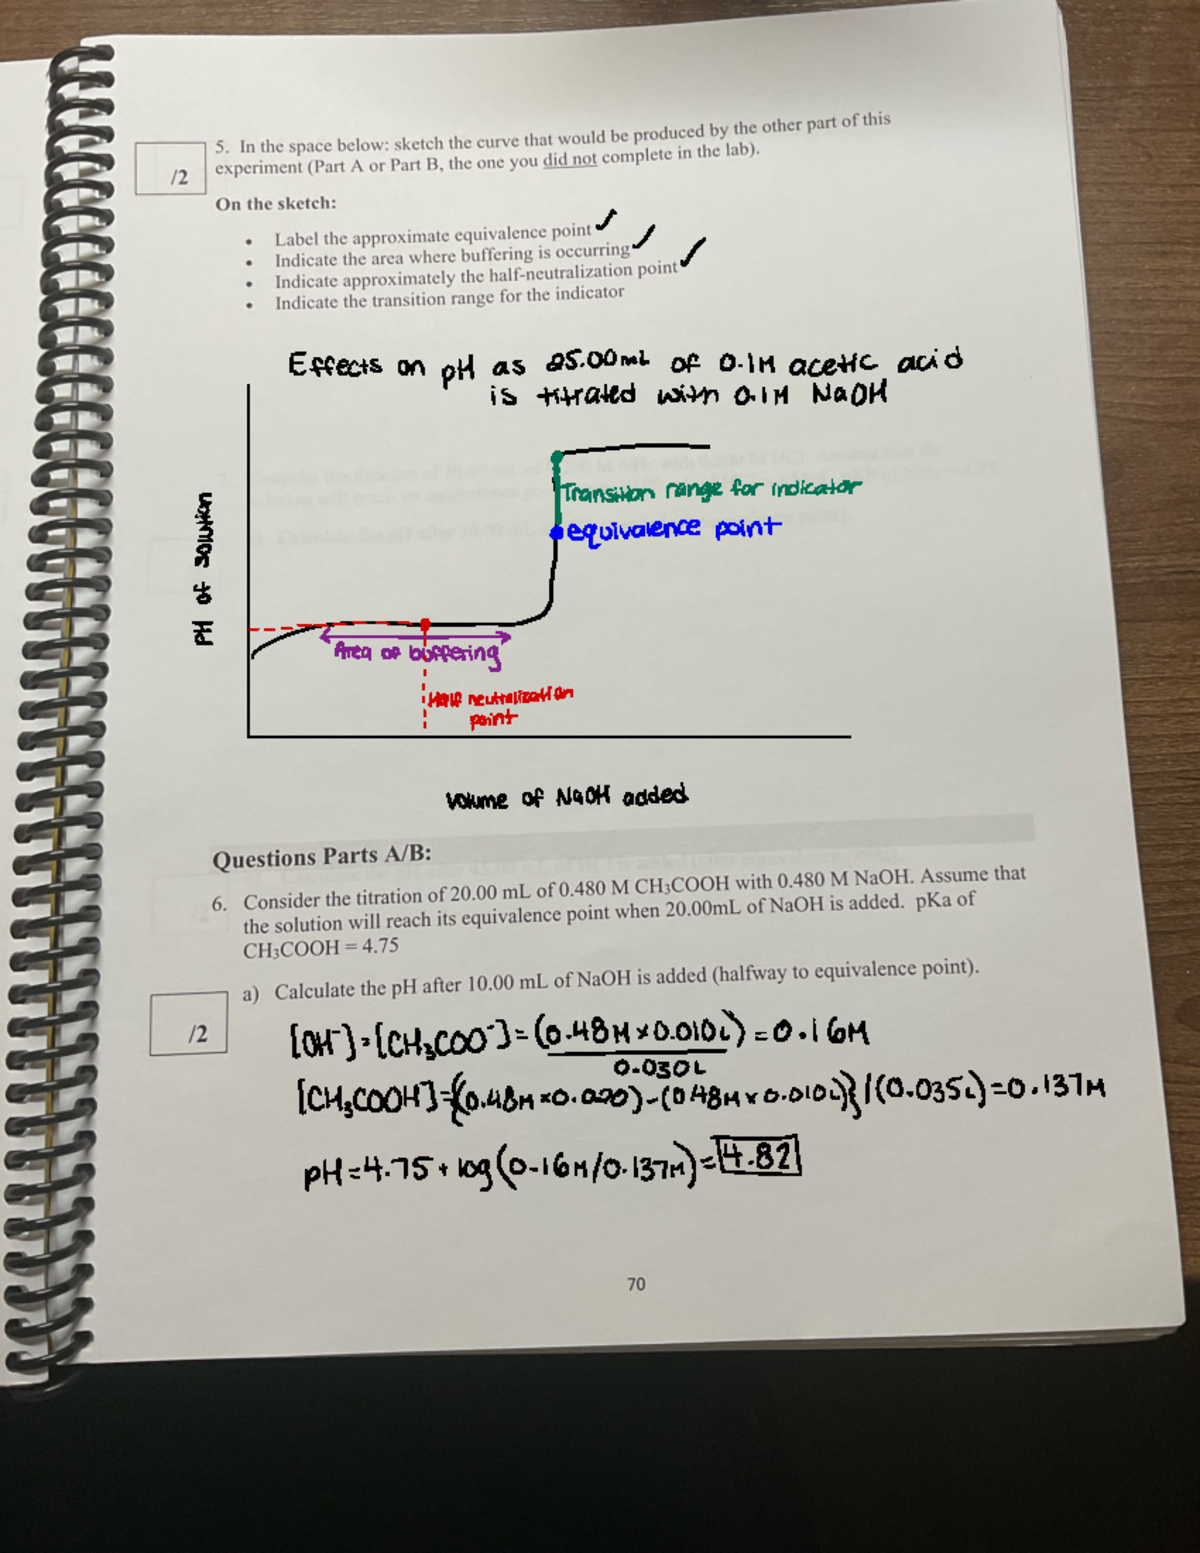 5. In the space below: sketch the curve that would be produced by the other part of this
experiment (Part A or Part B, the one you did not complete in the lab).
/2
On the sketch:
• Label the approximate equivalence point ✓
• Indicate the area where buffering is occurring ✓
• Indicate approximately the half-neutralization point ✓
• Indicate the transition range for the indicator
Effects on pH as 25.00mL of 0.1M acetic acid
is titrated with 0.1M NaOH
Transition range for indicator
equivalence point
PH of solution
Area of buffering
Half neutralization
point
Volume of NaOH added
Questions Parts A/B:
6. Consider the titration of 20.00 mL of 0.480 M CH₃COOH with 0.480 M NaOH. Assume that
the solution will reach its equivalence point when 20.00mL of NaOH is added. pKa of
CH₃COOH = 4.75
a) Calculate the pH after 10.00 mL of NaOH is added (halfway to equivalence point).
/2
[OH⁻]=[CH₃COO⁻]=(0.48M×0.010L)=0.16M
0.030L
[CH₃COOH]={(0.48M×0.020)-(0.48M×0.010L)}/(0.035L)=0.137M
pH=4.75+log(0.16M/0.137M)=4.82
70